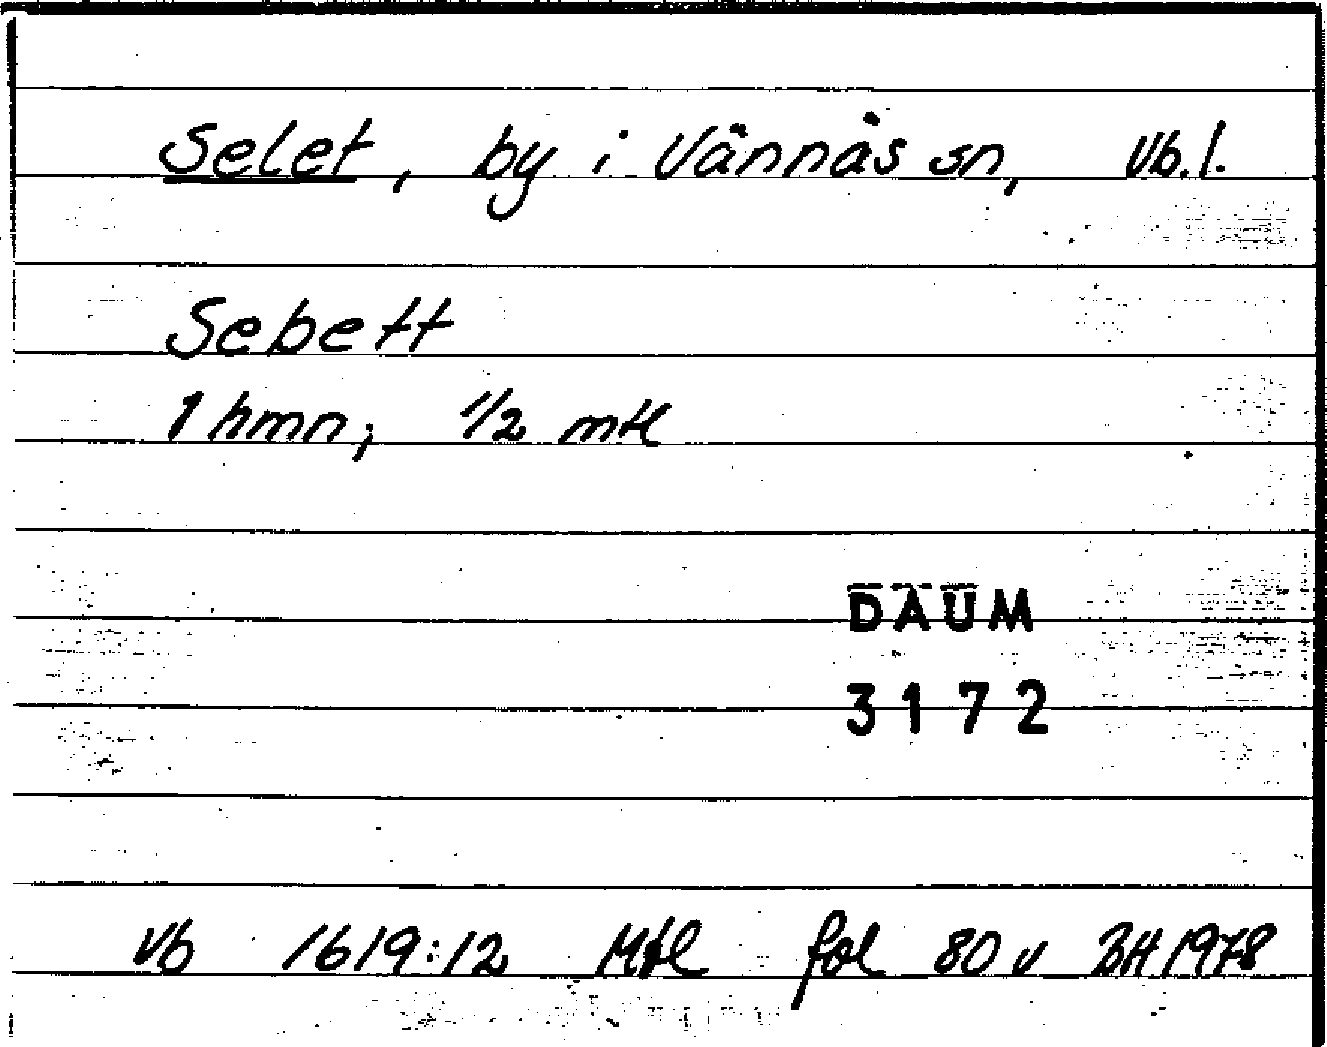 Selet, by i Vännäs sn, Vb.l.
Sebett
1 hmn, 1/2 mtl
DAUM
3172
Vb 1619:12 Mtl fol 80 v BH 1978